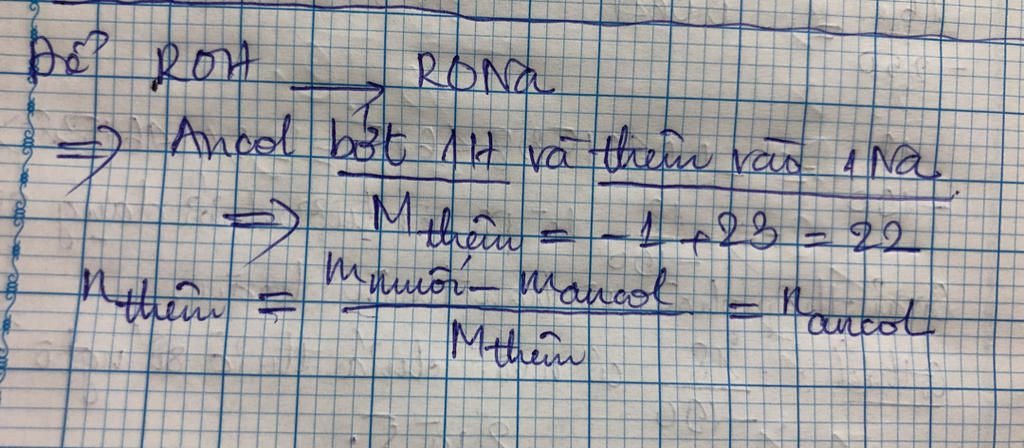 Để ROH → RONa
⇒ Ancol bớt 1H và thêm vào 1Na.
⇒ M thêm = -1 + 23 = 22
n thêm = (m muối - m ancol) / M thêm = n ancol